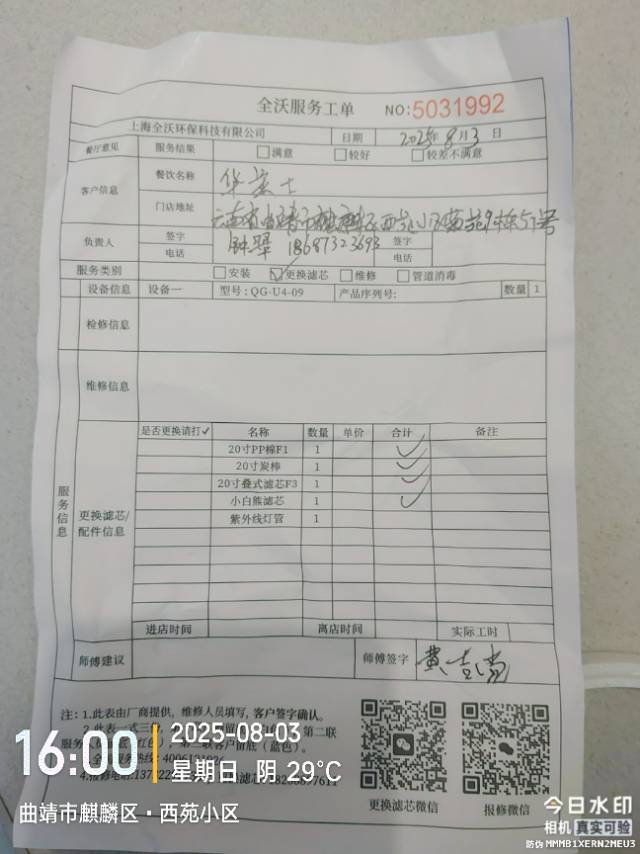 全沃服务工单 NO:5031992
上海全沃环保科技有限公司 日期 2025年8月3日
餐厅意见 服务结果 □满意 □较好 □较差不满意
客户信息 餐饮名称 华莱士
门店地址 云南省曲靖市麒麟区西苑小区
负责人 签字 电话 钟 18687323693 签字 电话
服务类别 □安装 ☑更换滤芯 □维修 □管道消毒
设备信息 设备一 型号:QG-U4-09 产品序列号: 数量 1
检修信息
维修信息
服务信息
更换滤芯/配件信息
是否更换请打✓ 名称 数量 单价 合计 备注
20寸PP棉F1 1 ✓
20寸炭棒 1 ✓
20寸叠式滤芯F3 1 ✓
小白熊滤芯 1 ✓
紫外线灯管 1
进店时间 离店时间 实际工时
师傅建议 师傅签字
注:1.此表由厂商提供,维修人员填写,客户签字确认。
2.此表一式三
第二联
第三联客户留底(蓝色)。
更换滤芯微信 报修微信
16:00 2025-08-03
星期日 阴 29℃
曲靖市麒麟区·西苑小区
今日水印
相机 真实可验
防伪 MMMB1XERN2MEU3